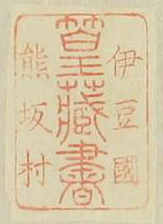 伊豆國
瞽主藏書
熊坂村